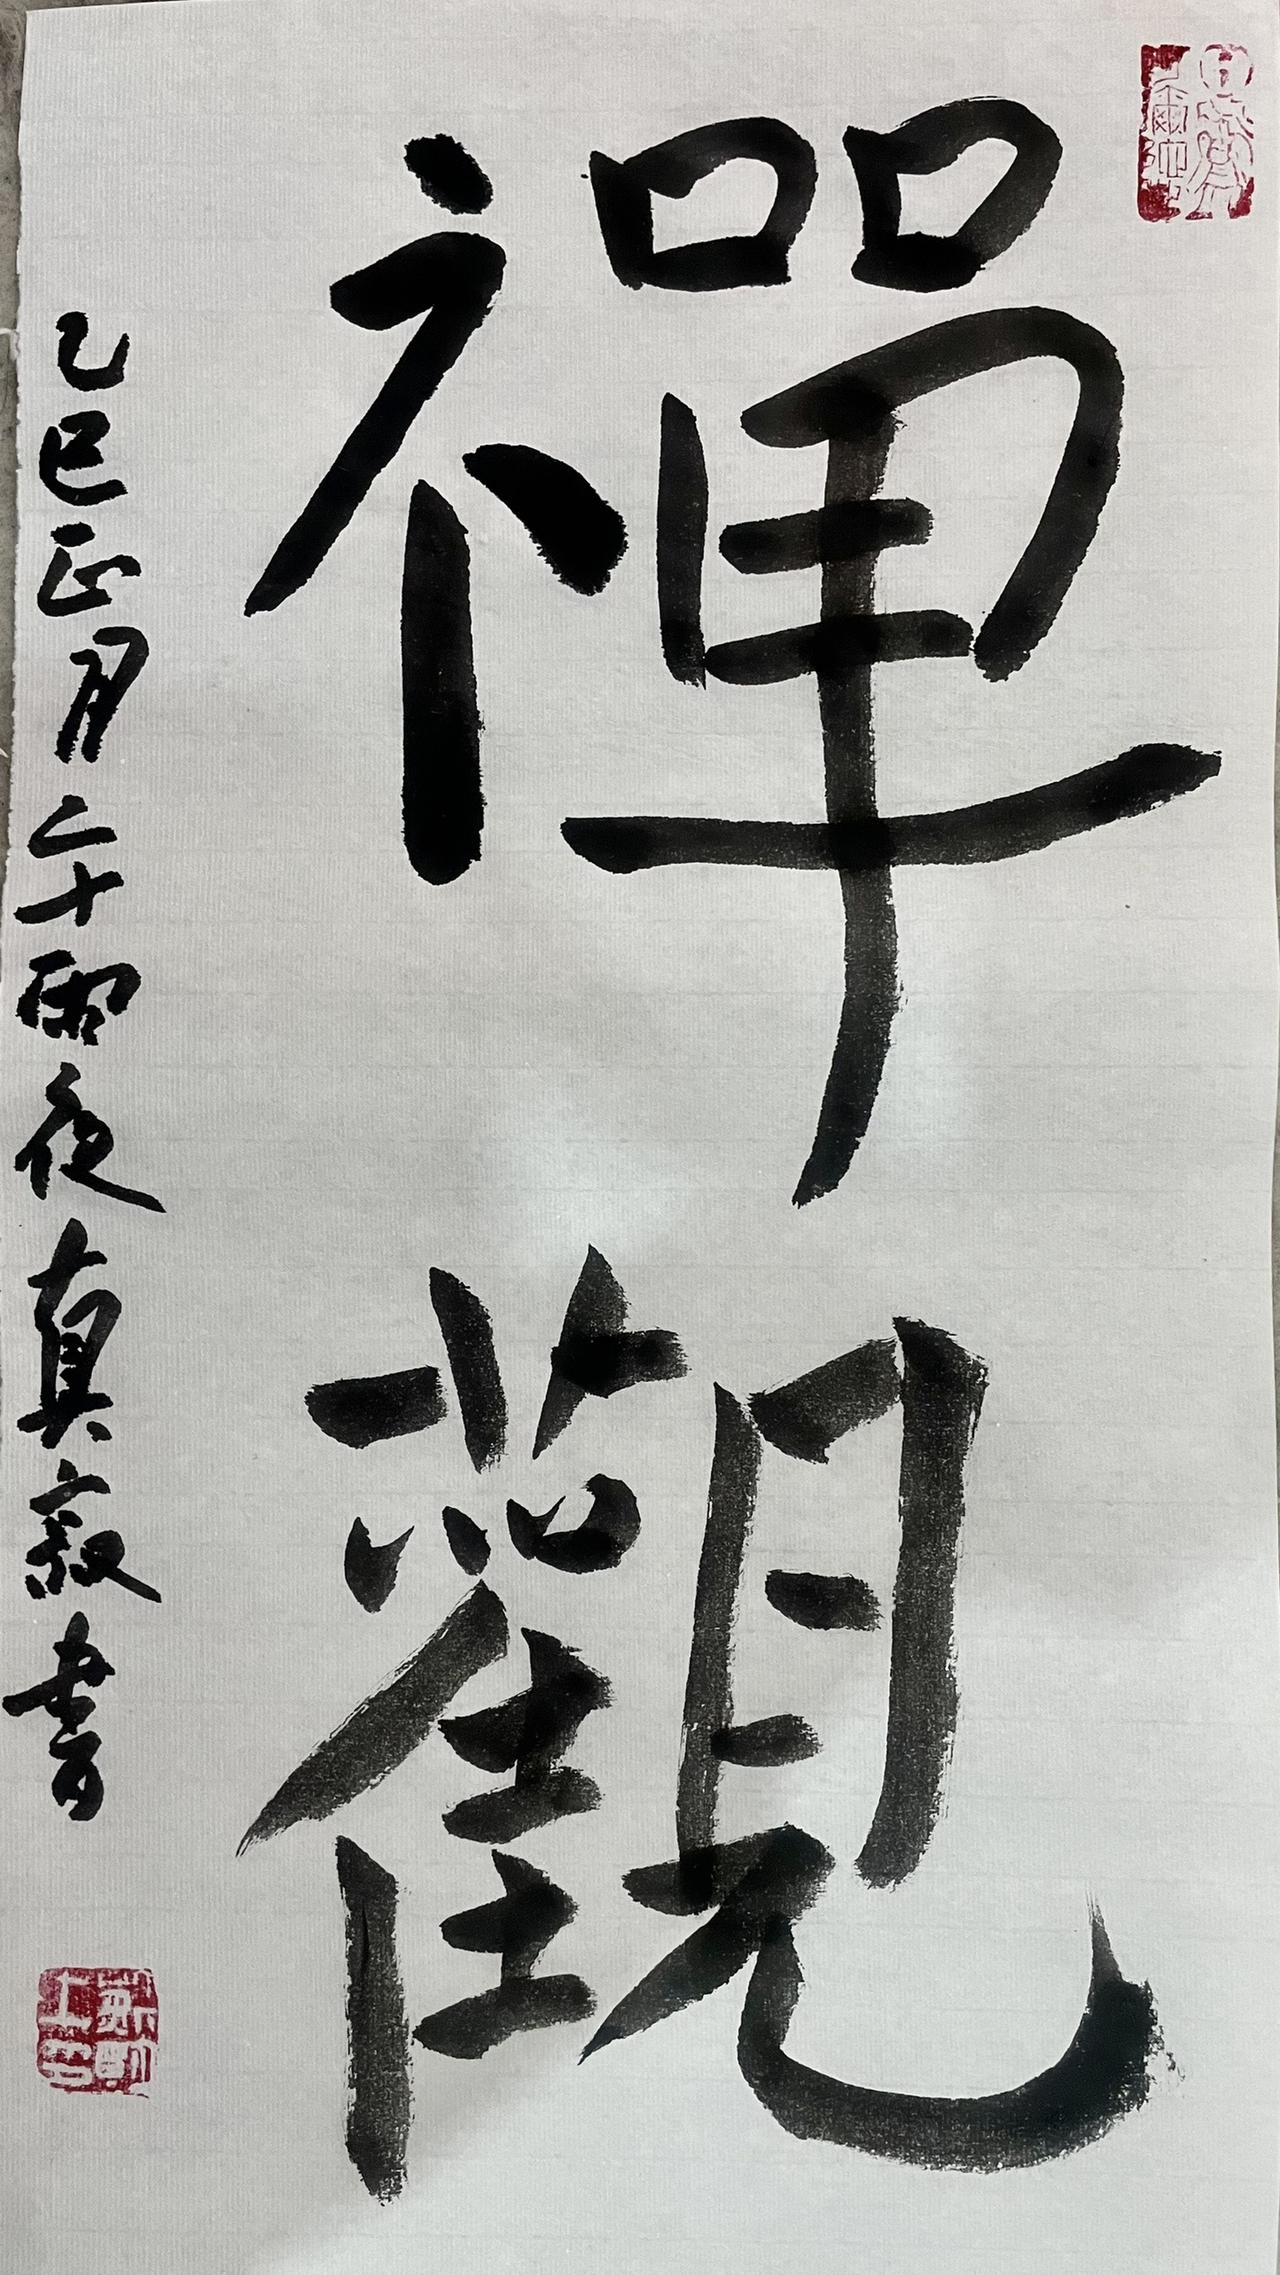 禪觀
乙巳正月二十雨夜真寂書